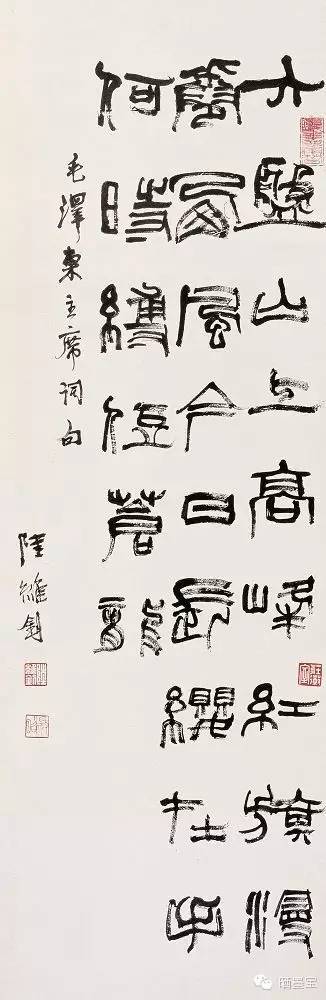 六盤山上高峰紅旗漫
卷西風今日長纓在手
何時縛住蒼龍
毛澤東主席詞句
陸維釗